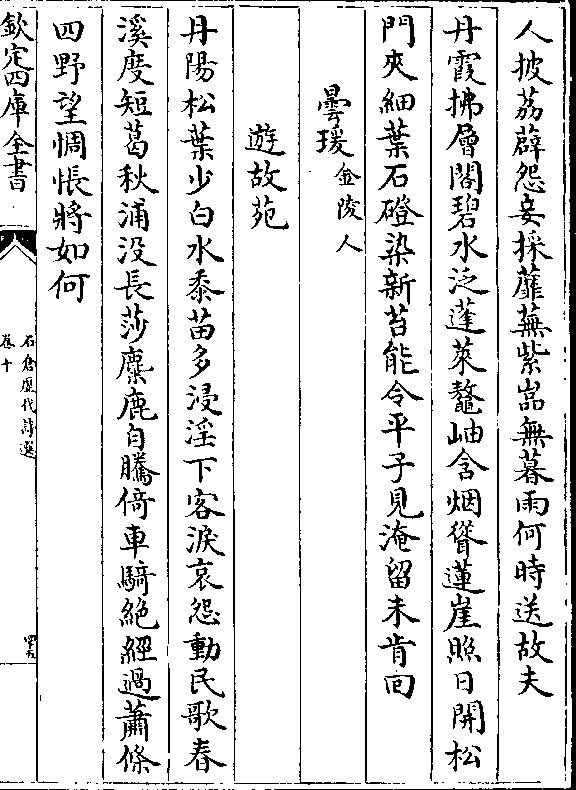 人披荔薜怨妾採蘼蕪紫嵓無暮雨何時送故夫
丹霞拂層閣碧水泛蓬萊鼇岫含烟聳蓮崖照日開松
門夾細葉石磴染新苔能令平子見淹留未肯回
曇瑗金陵人
遊故苑
丹陽松葉少白水黍苗多浸淫下客淚哀怨動民歌春
溪度短葛秋浦没長莎麋鹿自騰倚車騎絶經過蕭條
四野望惆悵將如何
欽定四庫全書
石倉歷代詩選
卷十